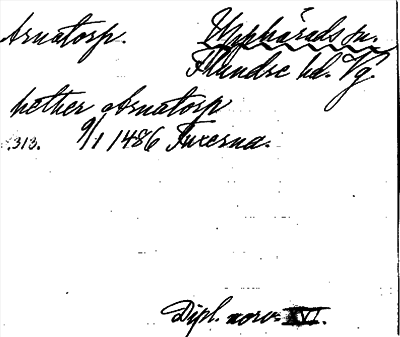 Arnatorp. Upphärads sn.
Flundre hd. Vg.
nether Arnatorp
.313. 9/1 1486 Tuxerna.
Dipl. norv. XVI.